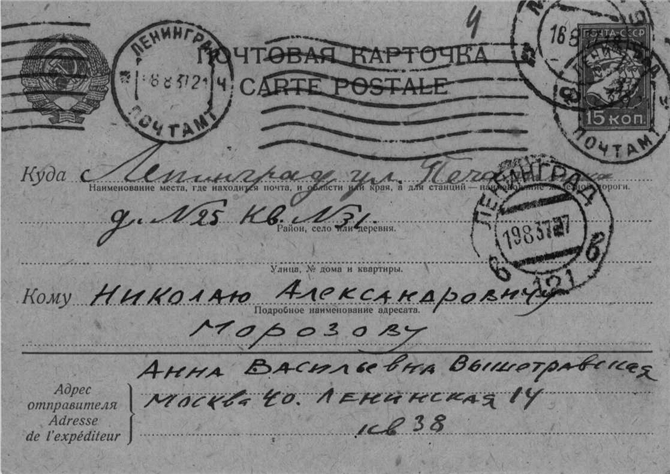 4
ПОЧТОВАЯ КАРТОЧКА
CARTE POSTALE
ЛЕНИНГРАД
8 8 37 21 Ч
ПОЧТАМТ
16 8
ПОЧТА СССР
15 КОП.
ЛЕНИНГРАД
ПОЧТАМТ
Куда Ленинград ул.
Наименование места, где находится почта, и области или края, а для станций — наименование железной дороги.
д. №25 кв. №31.
Район, село или деревня.
ЛЕНИНГРАД
19 8 37
в в
121
Улица, № дома и квартиры.
Кому Николаю Александровичу
Подробное наименование адресата.
Морозову
Анна Васильевна
Адрес
отправителя
Adresse
de l'expéditeur
Москва 40. Ленинская 14
кв 38